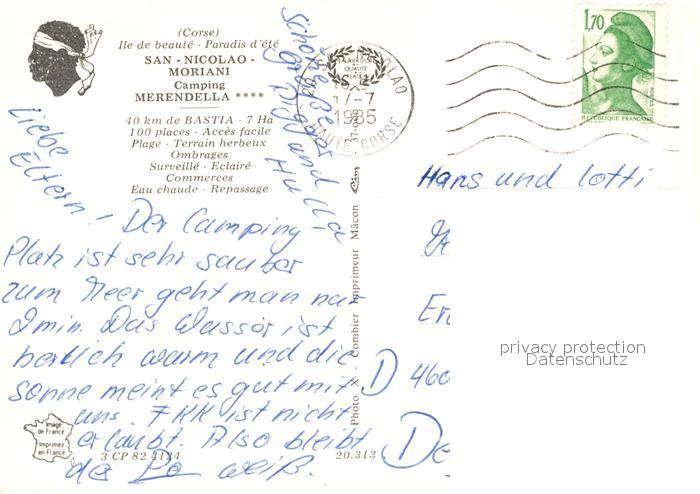 (Corse)
Ile de beauté - Paradis d'été
SAN - NICOLAO -
MORIANI
Camping
MERENDELLA ****
40 km de BASTIA - 7 Ha
100 places - Accès facile
Plage - Terrain herbeux
Ombrages
Surveillé - Eclairé
Commerces
Eau chaude - Repassage
Liebe
Eltern!
Der Camping-
Platz ist sehr sauber
zum Meer geht man nur
2 min. Das Wasser ist
herrlich warm und die
Sonne meint es gut mit
uns. FKK ist nicht
erlaubt. Also bleibt
der Po weiß.
Schöne
Grüße
und
Image
de France
Imprimée
en France
3 CP 82 4134
20.313
Photo X - Combier Imprimeur Mâcon
Cim
17-7
1985
HAUTE-CORSE
1,70
REPUBLIQUE FRANÇAISE
POSTES
Hans und Lotti
D 460
De
privacy protection
Datenschutz